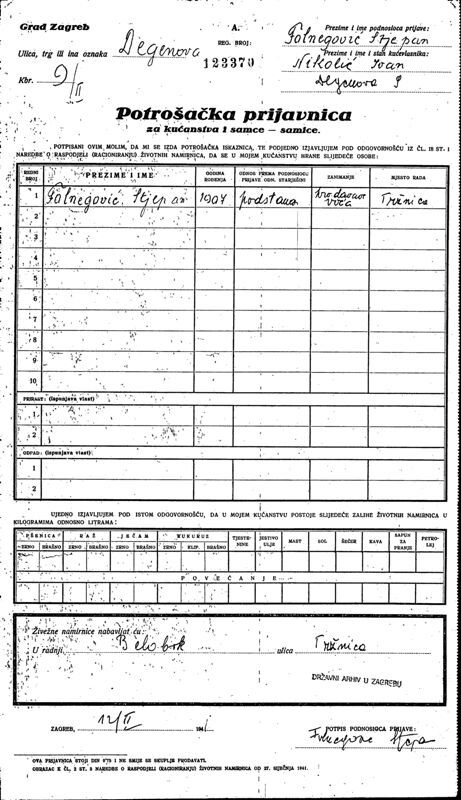 Grad Zagreb
Ulica, trg ili ina oznaka Degenova
Kbr. 9/II
A.
REG. BROJ:
123370
Prezime i ime podnosioca prijave:
Folnegović Stjepan
Prezime i ime i stan kućevlasnika:
Nikolić Ivan
Degenova 9
Potrošačka prijavnica
za kućanstva i samce — samice.
POTPISANI OVIM MOLIM, DA MI SE IZDA POTROŠAČKA ISKAZNICA, TE PODJEDNO IZJAVLJUJEM POD ODGOVORNOŠĆU IZ ČL. 18 ST. 1
NAREDBE O RASPODJELI (RACIONIRANJU) ŽIVOTNIH NAMIRNICA, DA SE U MOJEM KUĆANSTVU HRANE SLIJEDEĆE OSOBE:
REDNI BROJ PREZIME I IME GODINA ROĐENJA ODNOS PREMA PODNOSIOCU PRIJAVE ODN. STARJEŠINI ZANIMANJE MJESTO RADA
1 Folnegović Stjepan 1907 podstanar prodavaor voća Tržnica
2
3
4
5
6
7
8
9
10
PRIRAST: (ispunjava vlast)
1
2
OTPAD: (ispunjava vlast)
1
2
UJEDNO IZJAVLJUJEM POD ISTOM ODGOVORNOŠĆU, DA U MOJEM KUĆANSTVU POSTOJE SLIJEDEĆE ZALIHE ŽIVOTNIH NAMIRNICA U
KILOGRAMIMA ODNOSNO LITRAMA:
PŠENICA RAŽ JEČAM KUKURUZ TJESTENINE JESTIVO ULJE MAST SOL ŠEĆER KAVA SAPUN ZA PRANJE PETROLEJ
ZRNO BRAŠNO ZRNO BRAŠNO ZRNO BRAŠNO ZRNO KLIP. BRAŠNO
POVEĆANJE
Živežne namirnice nabavljat ću
U radnji Belobrk ulica Tržnica
DRŽAVNI ARHIV U ZAGREBU
ZAGREB, 12/II 1941
POTPIS PODNOSIOCA PRIJAVE:
OVA PRIJAVNICA STOJI DIN 0'75 I NE SMIJE SE SKUPLJE PRODAVATI.
OBRAZAC K ČL. 2 ST. 2 NAREDBE O RASPODJELI (RACIONIRANJU) ŽIVOTNIH NAMIRNICA OD ST. SIJEČNJA 1941.